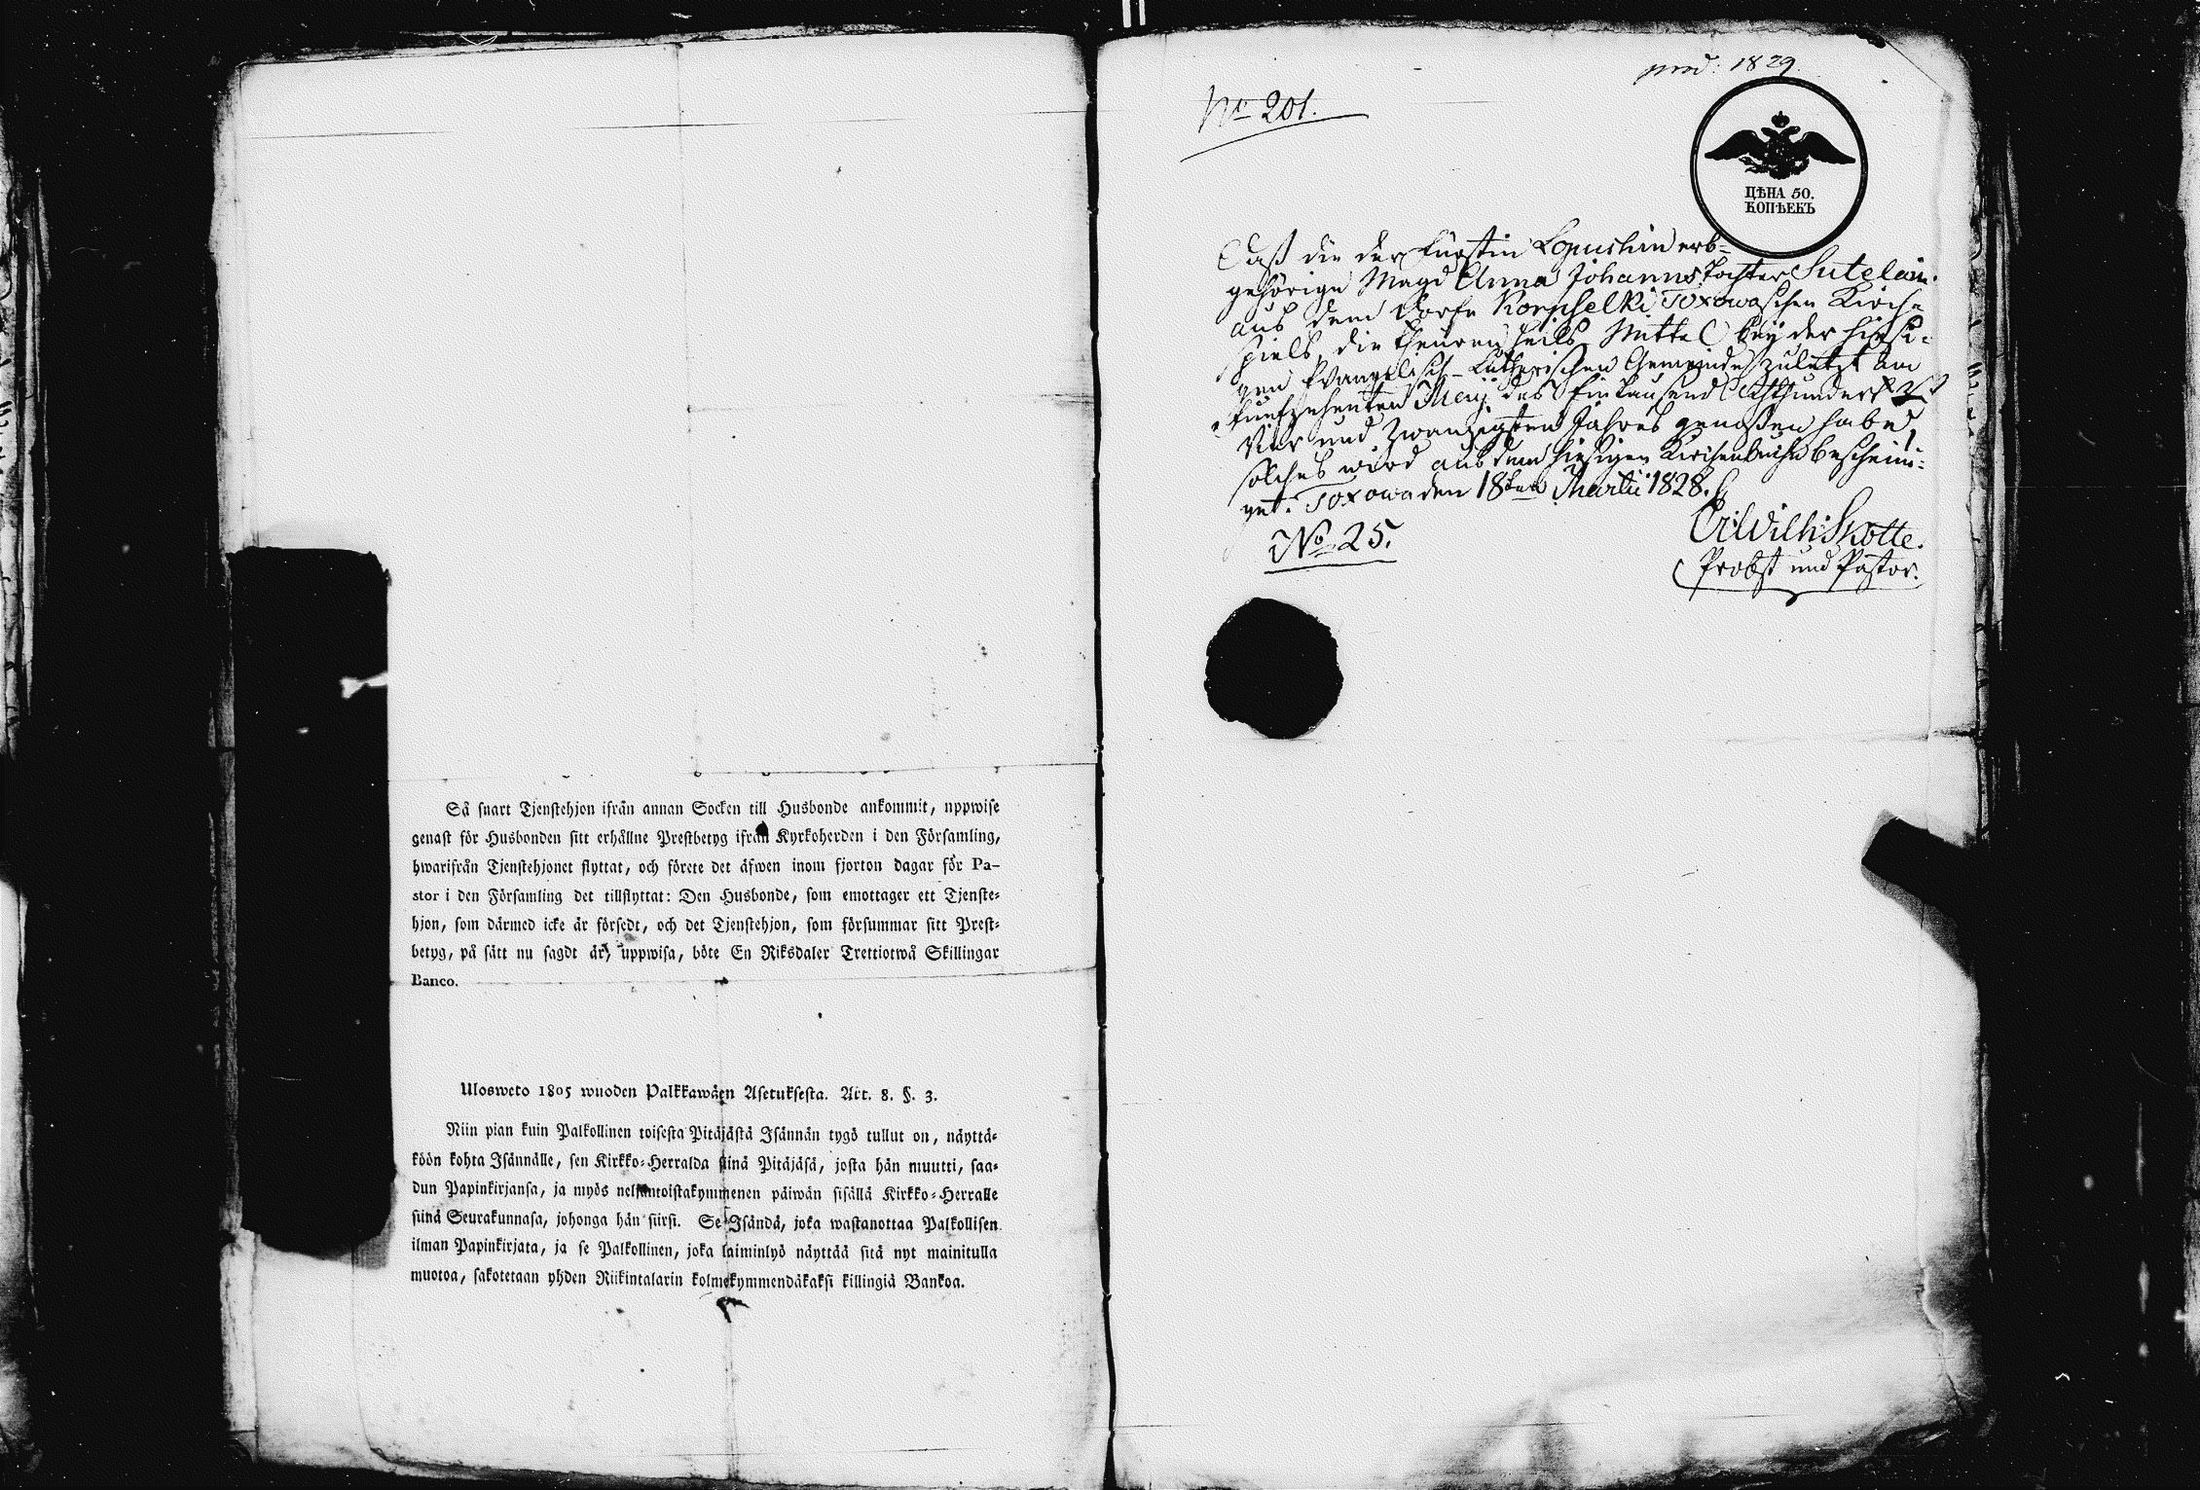 Så snart Tjenstehjon ifrån annan Socken till Husbonde ankommit, uppwise
genast för Husbonden sitt erhållne Prestbetyg ifrån Kyrkoherden i den Församling,
hwarifrån Tjenstehjonet flyttat, och förete det äfwen inom fjorton dagar för Pa-
stor i den Församling det tillflyttat: Den Husbonde, som emottager ett Tjenste-
hjon, som därmed icke är försedt, och det Tjenstehjon, som försummar sitt Prest-
betyg, på sätt nu sagdt är, uppwisa, böte En Riksdaler Trettiotwå Skillingar
Banco.
Ulosweto 1805 wuoden Palkkawäen Asetuksesta. Art. 8. §. 3.
Niin pian kuin Palkollinen toisesta Pitäjästä Isännän tygö tullut on, näyttä-
köön kohta Isännälle, sen Kirkko-Herralda siinä Pitäjäsä, josta hän muutti, saa-
dun Papinkirjansa, ja myös neljäntoistakymmenen päiwän sisällä Kirkko-Herralle
siinä Seurakunnasa, johonga hän siirsi. Se Isändä, joka wastanottaa Palkollisen
ilman Papinkirjata, ja se Palkollinen, joka laiminlyö näyttää sitä nyt mainitulla
muotoa, sakotetaan yhden Riikintalarin kolmekymmendäkaksi killingiä Bankoa.
prod: 1829.
No 201.
ЦѢНА 50.
КОПѢЕКЪ
Daß die der Fürstin Lopuchin erb-
gehörige Magd Anna Johannstochter Sutelain
aus dem Dorfe Korpselki Toxowaschen Kirch-
spiels, die theuren Heils-Mittel bey der hiesi-
gen Evangelisch-Lutherischen Gemeinde zuletzt am
funfzehenten May des Eintausend Achthundert
Vier und Zwanzigsten Jahres genoßen habe,
solches wird aus dem hiesigen Kirchenbuche bescheini-
get. Toxowa den 18ten Martii 1828.
No 25.
Wilh: Skotte.
Probst und Pastor.